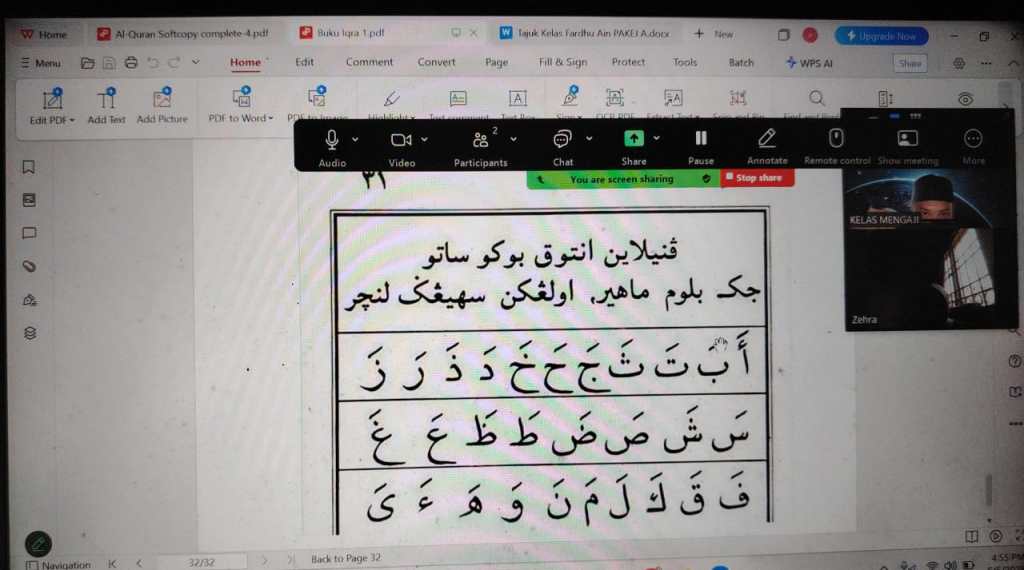 Home
Al-Quran Softcopy complete-4.pdf
Buku Iqra 1.pdf
Tajuk Kelas Fardhu Ain PAKEJ A.docx
+ New
Upgrade Now
Menu
Home Edit Comment Convert Page Fill & Sign Protect Tools Batch WPS AI
Share
Edit PDF Add Text Add Picture PDF to Word PDF to Image Highlight
Audio Video Participants 2 Chat Share Pause Annotate Remote control Show meeting More
You are screen sharing
Stop share
٣١
KELAS MENGAJI
Zehra
ڤنيلاين انتوق بوكو ساتو
جک بلوم ماهير, اولڠکن سهيڠݢ لنچر
أَ بَ تَ ثَ جَ حَ خَ دَ ذَ رَ زَ
سَ شَ صَ ضَ طَ ظَ عَ غَ
فَ قَ كَ لَ مَ نَ وَ هَ ءَ يَ
Navigation
32/32
Back to Page 32
4:55 PM